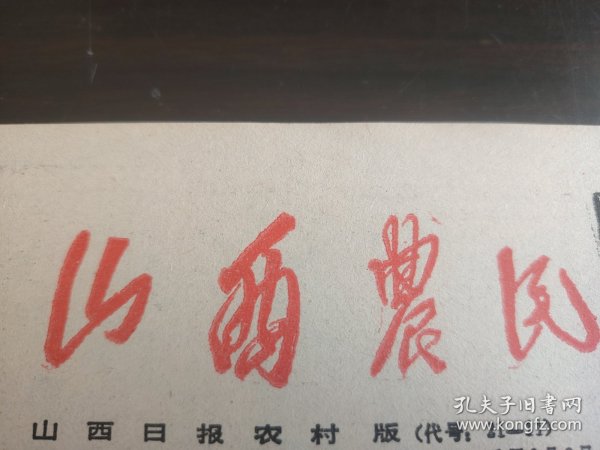 山西農民
山西日报农村版(代号:21—31)
孔夫子旧书网
www.kongfz.com